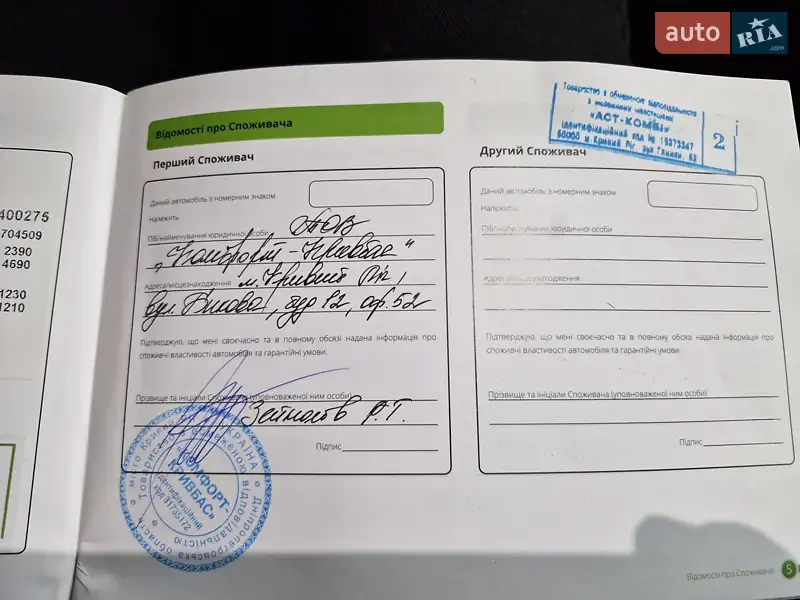 auto RIA .com
Товариство з обмеженою відповідальністю
з іноземними інвестиціями
«АСТ-КОМБІ»
ідентифікаційний код № 19373347
50000 м.Кривий Ріг, вул.Глінки,
2
400275
704509
2390
4690
1230
1210
Відомості про Споживача
Перший Споживач
Даний автомобіль з номерним знаком
Належить
ПІБ/найменування юридичної особи ТОВ
"Комфорт-Кривбас"
Адреса/місцезнаходження м. Кривий Ріг,
вул. буд 12, оф. 52
Підтверджую, що мені своєчасно та в повному обсязі надана інформація про
споживчі властивості автомобіля та гарантійні умови.
Прізвище та ініціали Споживача (уповноваженої ним особи)
Р.Т.
Підпис
Україна Дніпропетровська область місто Кривий
Товариство з обмеженою відповідальністю
"КОМФОРТ-
КРИВБАС"
Ідентифікаційний
код 31735172
Другий Споживач
Даний автомобіль з номерним знаком
Належить
ПІБ/найменування юридичної особи
Адреса/місцезнаходження
Підтверджую, що мені своєчасно та в повному обсязі надана інформація про
споживчі властивості автомобіля та гарантійні умови.
Прізвище та ініціали Споживача (уповноваженої ним особи)
Підпис
Відомості про Споживача 5